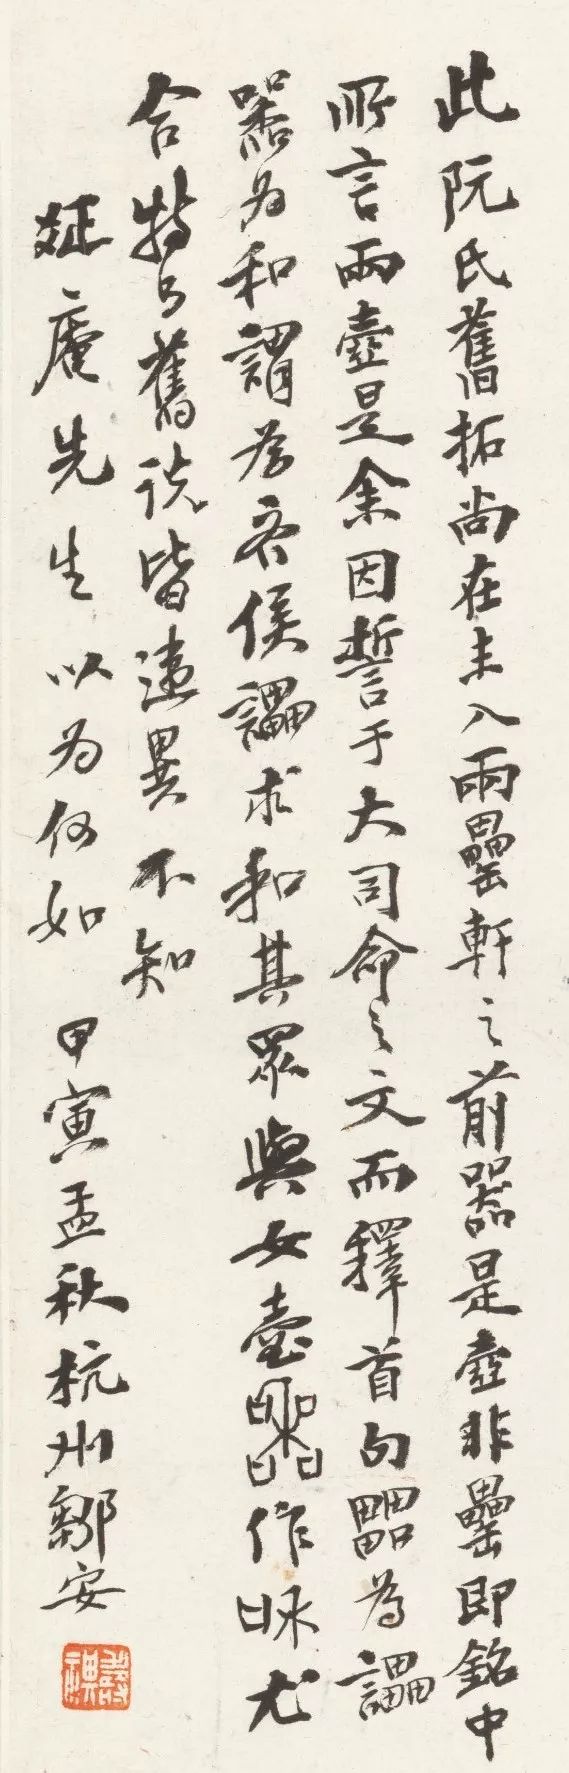 此阮氏舊拓尚在未入兩罍軒之前器是壺非罍即銘中
所言兩壺是余因誓于大司命之文而釋首句為讄
器為和謂齊侯讄求和其眾與女壺作尤
合特與舊說皆違異不知
庵先生以為何如 甲寅孟秋杭州鄒安